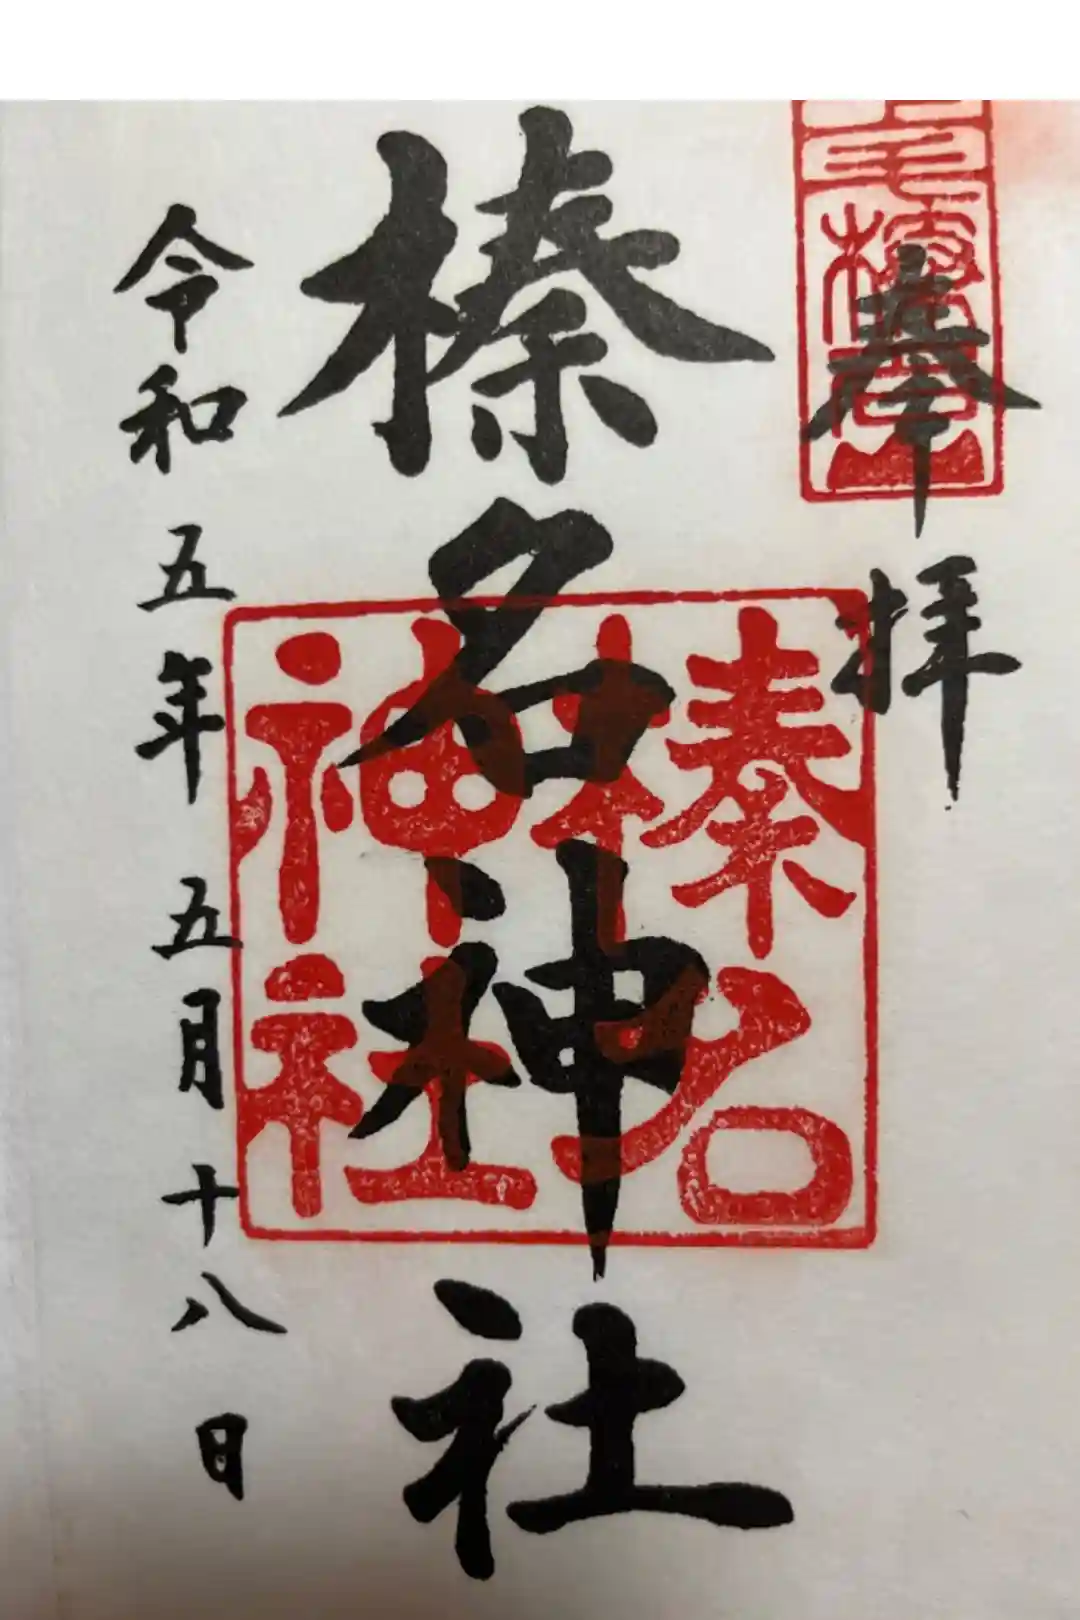 奉拝
上毛榛名山
榛名神社
榛名神社
令和五年五月十八日